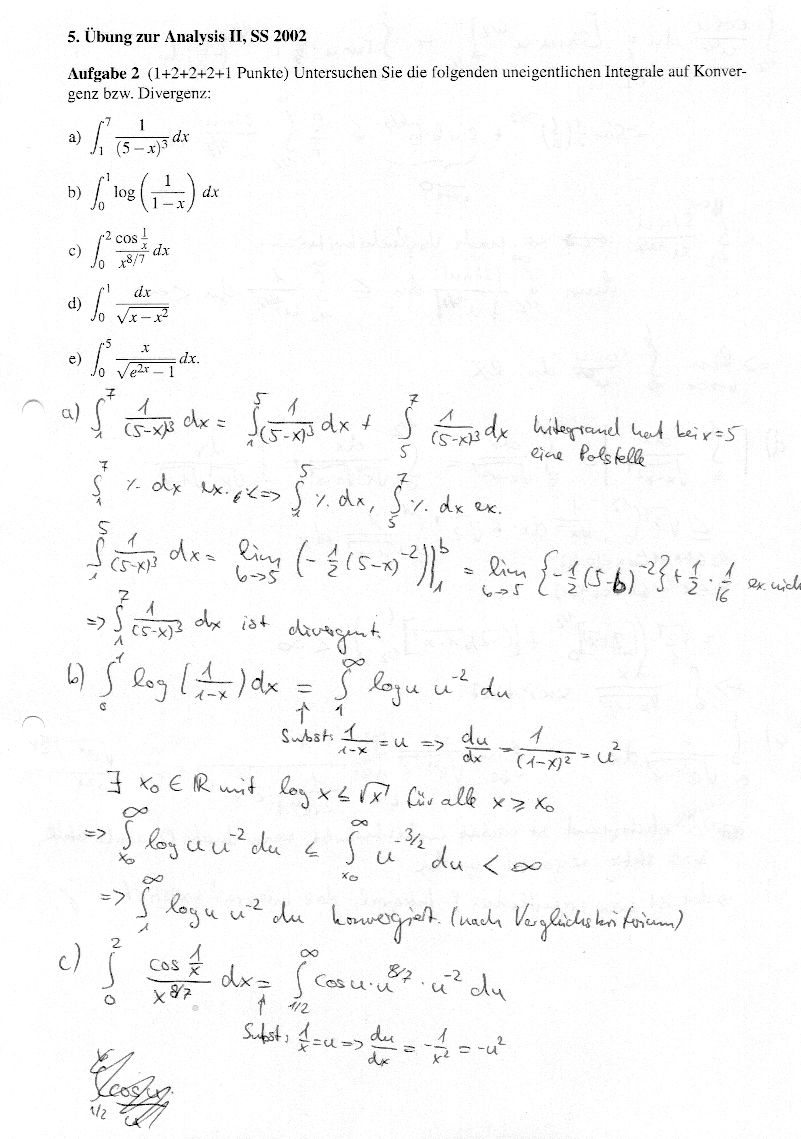 5. Übung zur Analysis II, SS 2002
Aufgabe 2 (1+2+2+2+1 Punkte) Untersuchen Sie die folgenden uneigentlichen Integrale auf Konver-
genz bzw. Divergenz:
a) ∫₁⁷ 1/(5 − x)³ dx
b) ∫₀¹ log(1/(1 − x)) dx
c) ∫₀² cos(1/x)/x^{8/7} dx
d) ∫₀¹ dx/√(x − x²)
e) ∫₀⁵ x/√(e^{2x} − 1) dx.
a) ∫₁⁷ 1/(5-x)³ dx = ∫₁⁵ 1/(5-x)³ dx + ∫₅⁷ 1/(5-x)³ dx Integrand hat bei x=5
eine Polstelle
∫₁⁷ ·/. dx ex. <=> ∫₁⁵ ·/. dx, ∫₅⁷ ·/. dx ex.
∫₁⁵ 1/(5-x)³ dx = lim_{b→5} (-1/2 (5-x)^{-2})|₁^b = lim_{b→5} {-1/2 (5-b)^{-2}} + 1/2 · 1/16 ex. nich
=> ∫₁⁷ 1/(5-x)³ dx ist divergent.
b) ∫₀¹ log(1/(1-x)) dx = ∫₁^∞ log u u^{-2} du
↑
Subst: 1/(1-x) = u => du/dx = 1/(1-x)² = u²
∃ x₀ ∈ ℝ mit log x ≤ √x für alle x ≥ x₀
=> ∫_{x₀}^∞ log u u^{-2} du ≤ ∫_{x₀}^∞ u^{-3/2} du < ∞
=> ∫₁^∞ log u u^{-2} du konvergiert. (nach Vergleichskriterium)
c) ∫₀² cos(1/x)/x^{8/7} dx = ∫_{1/2}^∞ cos u · u^{8/7} · u^{-2} du
↑
Subst: 1/x = u => du/dx = -1/x² = -u²
1/2 cos u